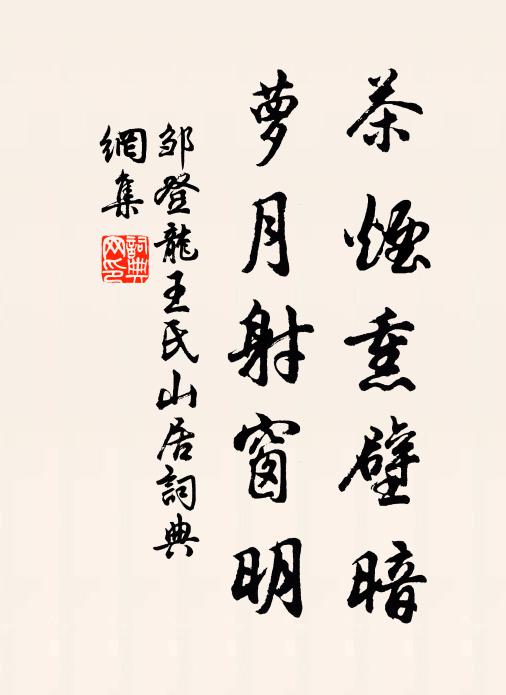 茶煙熏壁暗
蘿月射窗明
邹登龍王氏山居詞典
網集
詞典
网印